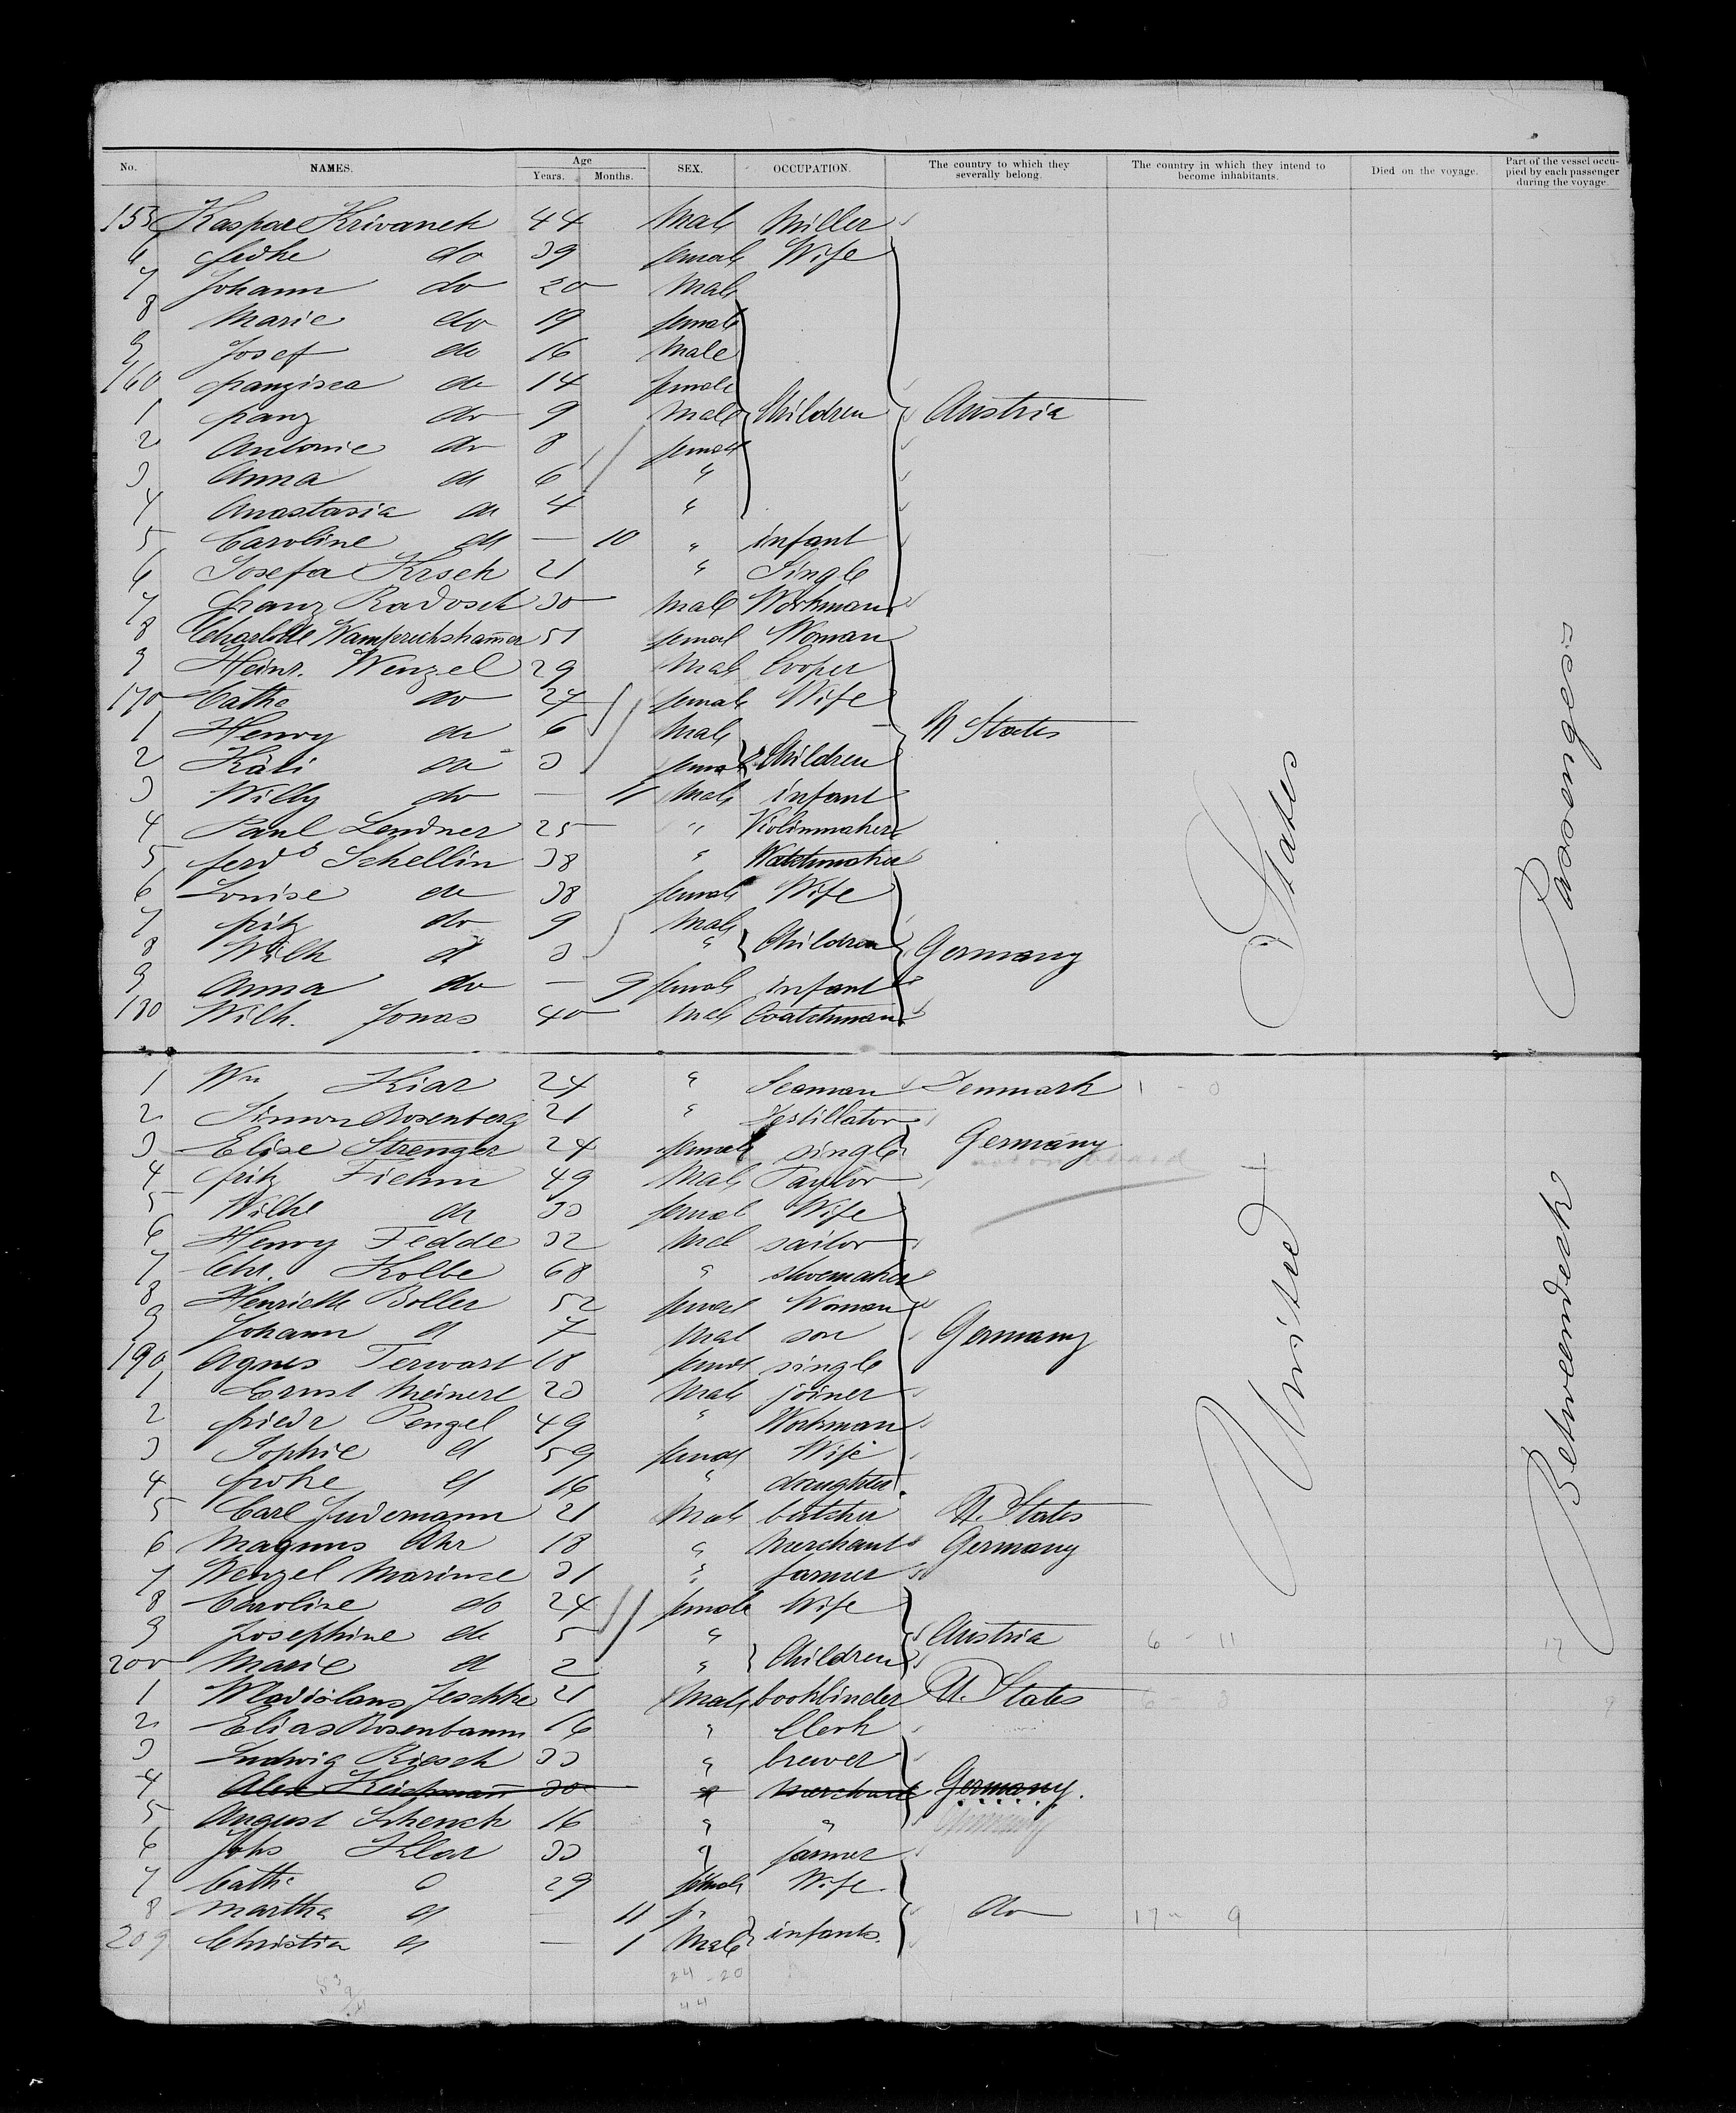 No. NAMES. Age Years. Months. SEX. OCCUPATION. The country to which they severally belong. The country in which they intend to become inhabitants. Died on the voyage. Part of the vessel occupied by each passenger during the voyage.
155 Kaspar Krivanek 44 Male Miller
6 do 39 female Wife
7 Johann do 20 Male
8 Marie do 19 female
9 Josef do 16 Male
160 franzisca do 14 female
1 franz do 9 Male Children Austria
2 Antonie do 8 female
3 Anna do 6 "
4 Anastasia do 4 "
5 Caroline do — 10 " infant
6 Josefa Krsek 21 " Single
7 franz Radosch 30 Male Workman
8 Charlotte 51 femal Woman
9 Heinr. Wenzel 29 Male Cooper
170 Cathe do 24 female Wife
1 Henry do 6 Male U States
2 Käti do 3 female Children
3 Willy do — 11 Male infant
4 Paul Lendner 25 " Violinmaker
5 ferdd Schellin 38 " Watchmaker
6 Louise do 38 female Wife
7 fritz do 9 Male
8 Wilh d 3 " Children Germany
9 Anna do — 9 female infant
180 Wilh. Jonas 40 Male Coatchman
1 Wm Kiar 24 " Seaman Denmark 1 - 0
2 Simon Rosenberg 21 " Destillator
3 Elise Strenger 24 female single Germany
4 fritz Fiehm 49 Male Taylor
5 Wilhe do 33 femal Wife
6 Henry Fedde 32 Mal sailor
7 Chr. Kolbe 68 " shoemaker
8 Henriette Boller 52 femal Woman
9 Johann d 7 Mal son Germany
190 Agnes Terwart 18 femal single
1 Ernst Meinert 23 Male joiner
2 friedr Pengel 49 " Workman
3 Sophie d 59 femal Wife
4 d 16 " daughter
5 Carl Judemann 21 Male butcher U. States
6 Magnus Ahr 18 " Merchant Germany
7 Wenzel 31 " farmer
8 Caroline do 24 female Wife
9 Josephine do 5 " Austria 6 - 11 17
200 Marie d 2 " Children
1 Wladislaus Jeschke 21 Male bookbinder U. States 6 - 3 9
2 Elias Rosenbaum 16 " Clerk
3 Ludwig Riesch 33 " brewer
4 Alex 30 " Merchant Germany.
5 August Schenck 16 " " Germany
6 Johs Klar 33 " farmer
7 Cathe d 29 female Wife
8 Martha d — 11 f do 17 9
209 Christian d — 1 Male infants.
24 - 20
44
United States
Betweendeck Passengers